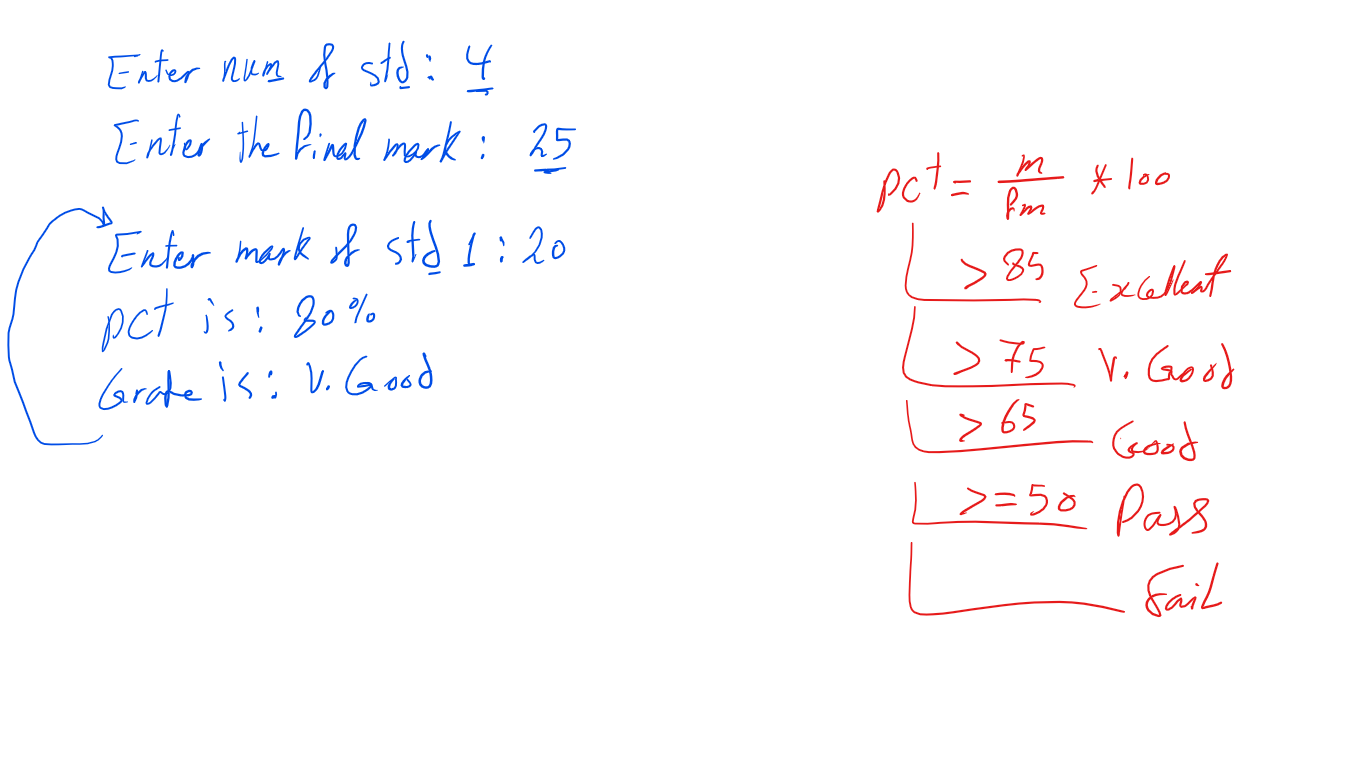 Enter num of std: 4
Enter the final mark: 25
Enter mark of std 1: 20
pct is: 80%
Grate is: V. Good
pct = m / fm * 100
> 85 Excellent
> 75 V. Good
> 65 Good
>= 50 Pass
Fail